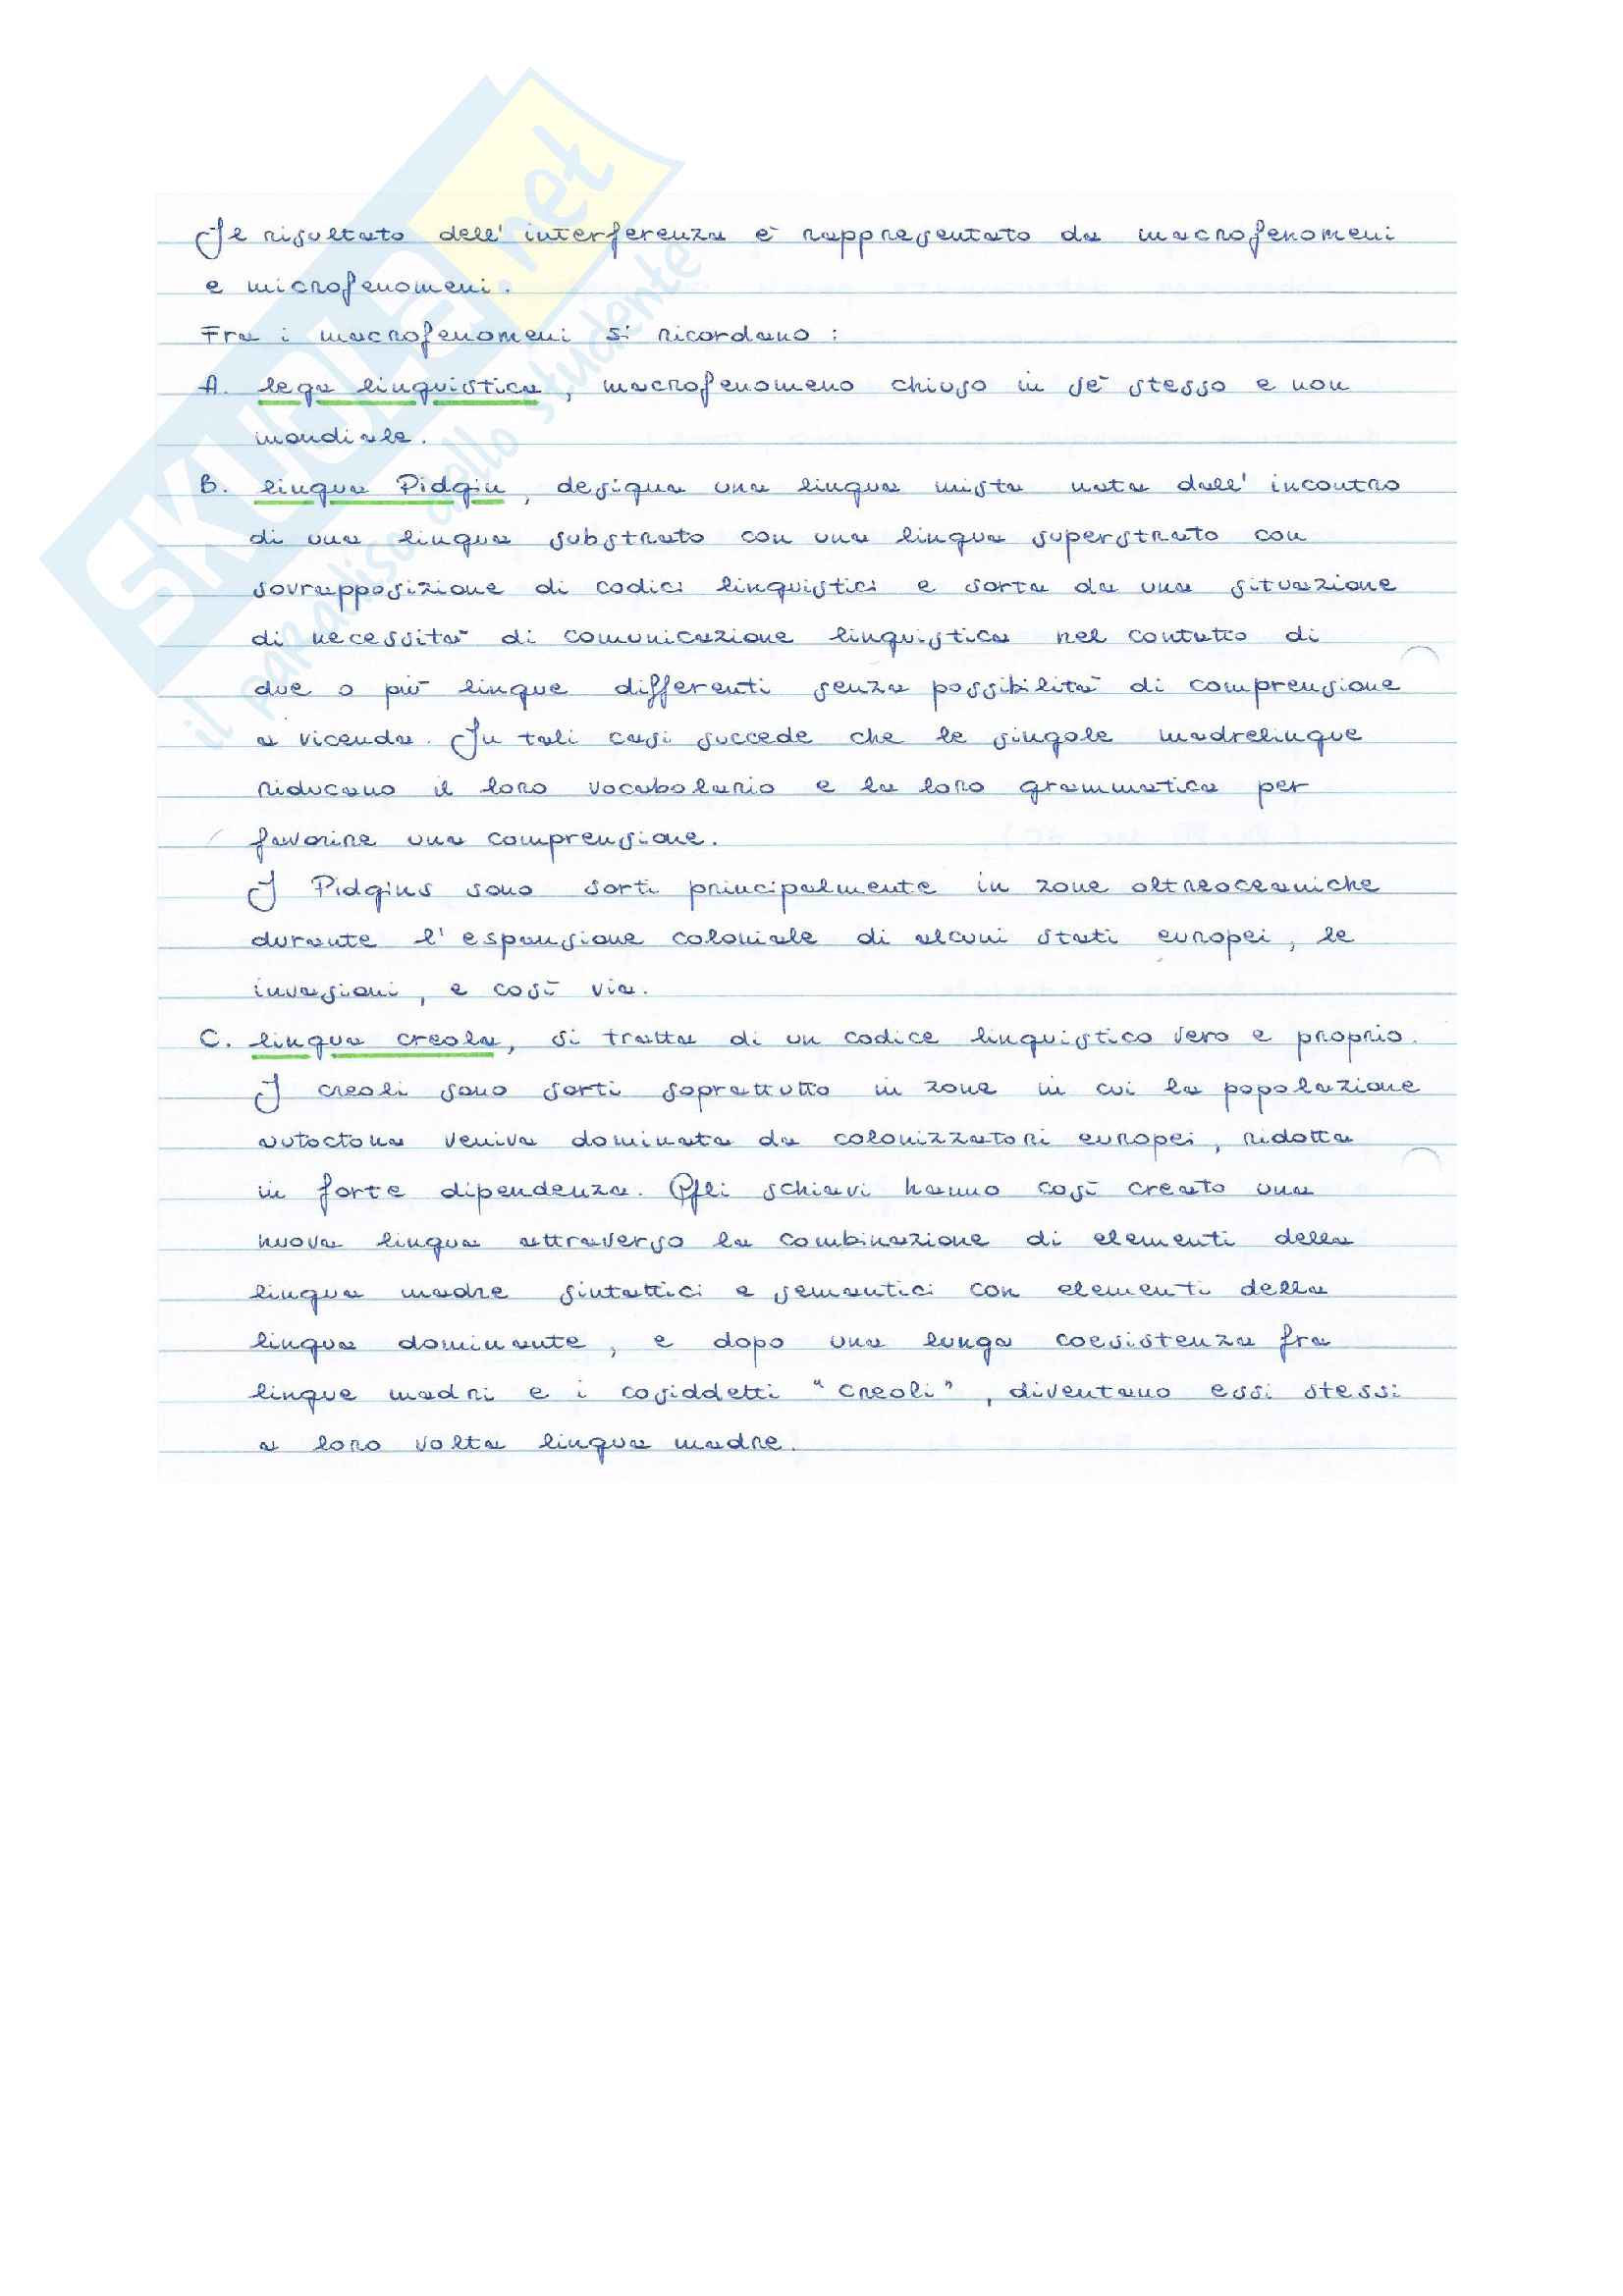 SKUOLA.net
il paradiso dello studente
Il risultato dell'interferenza è rappresentato da macrofenomeni
e microfenomeni.
Fra i macrofenomeni si ricordano :
A. lega linguistica, macrofenomeno chiuso in sé stesso e non
mondiale.
B. lingua Pidgin, designa una lingua mista nata dall'incontro
di una lingua substrato con una lingua superstrato con
sovrapposizione di codici linguistici e sorta da una situazione
di necessità di comunicazione linguistica nel contatto di
due o più lingue differenti senza possibilità di comprensione
a vicenda. In tali casi succede che le singole madrelingue
riducano il loro vocabolario e la loro grammatica per
favorire una comprensione.
I Pidgins sono sorti principalmente in zone oltreoceaniche
durante l'espansione coloniale di alcuni stati europei, le
invasioni, e così via.
C. lingua creola, si tratta di un codice linguistico vero e proprio.
I creoli sono sorti soprattutto in zone in cui la popolazione
autoctona veniva dominata da colonizzatori europei, ridotta
in forte dipendenza. Gli schiavi hanno così creato una
nuova lingua attraverso la combinazione di elementi della
lingua madre sintattici e semantici con elementi della
lingua dominante, e dopo una lunga coesistenza fra
lingue madri e i cosiddetti "creoli", diventano essi stessi
a loro volta lingua madre.